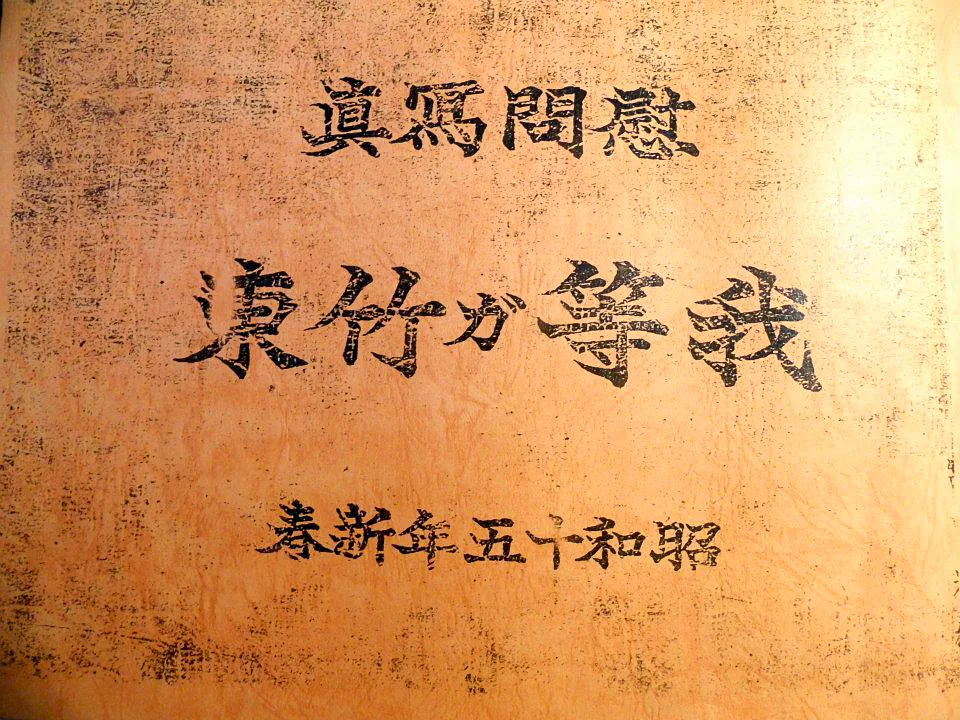 慰問寫眞
我等ガ竹東
昭和十五年新春